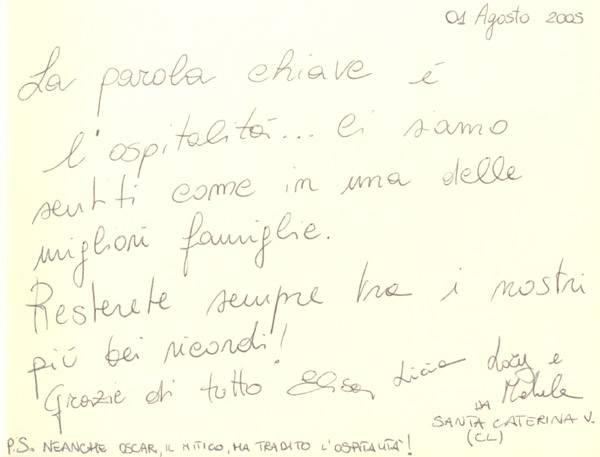 01 Agosto 2005
La parola chiave è
l'ospitalità... Ci siamo
sentiti come in una delle
migliori famiglie.
Resterete sempre tra i nostri
più bei ricordi!
Grazie di tutto Elisa, Licia Lory e
Michele
DA
SANTA CATERINA V.
(CL)
P.S. NEANCHE OSCAR, IL MITICO, HA TRADITO L'OSPITALITÀ!